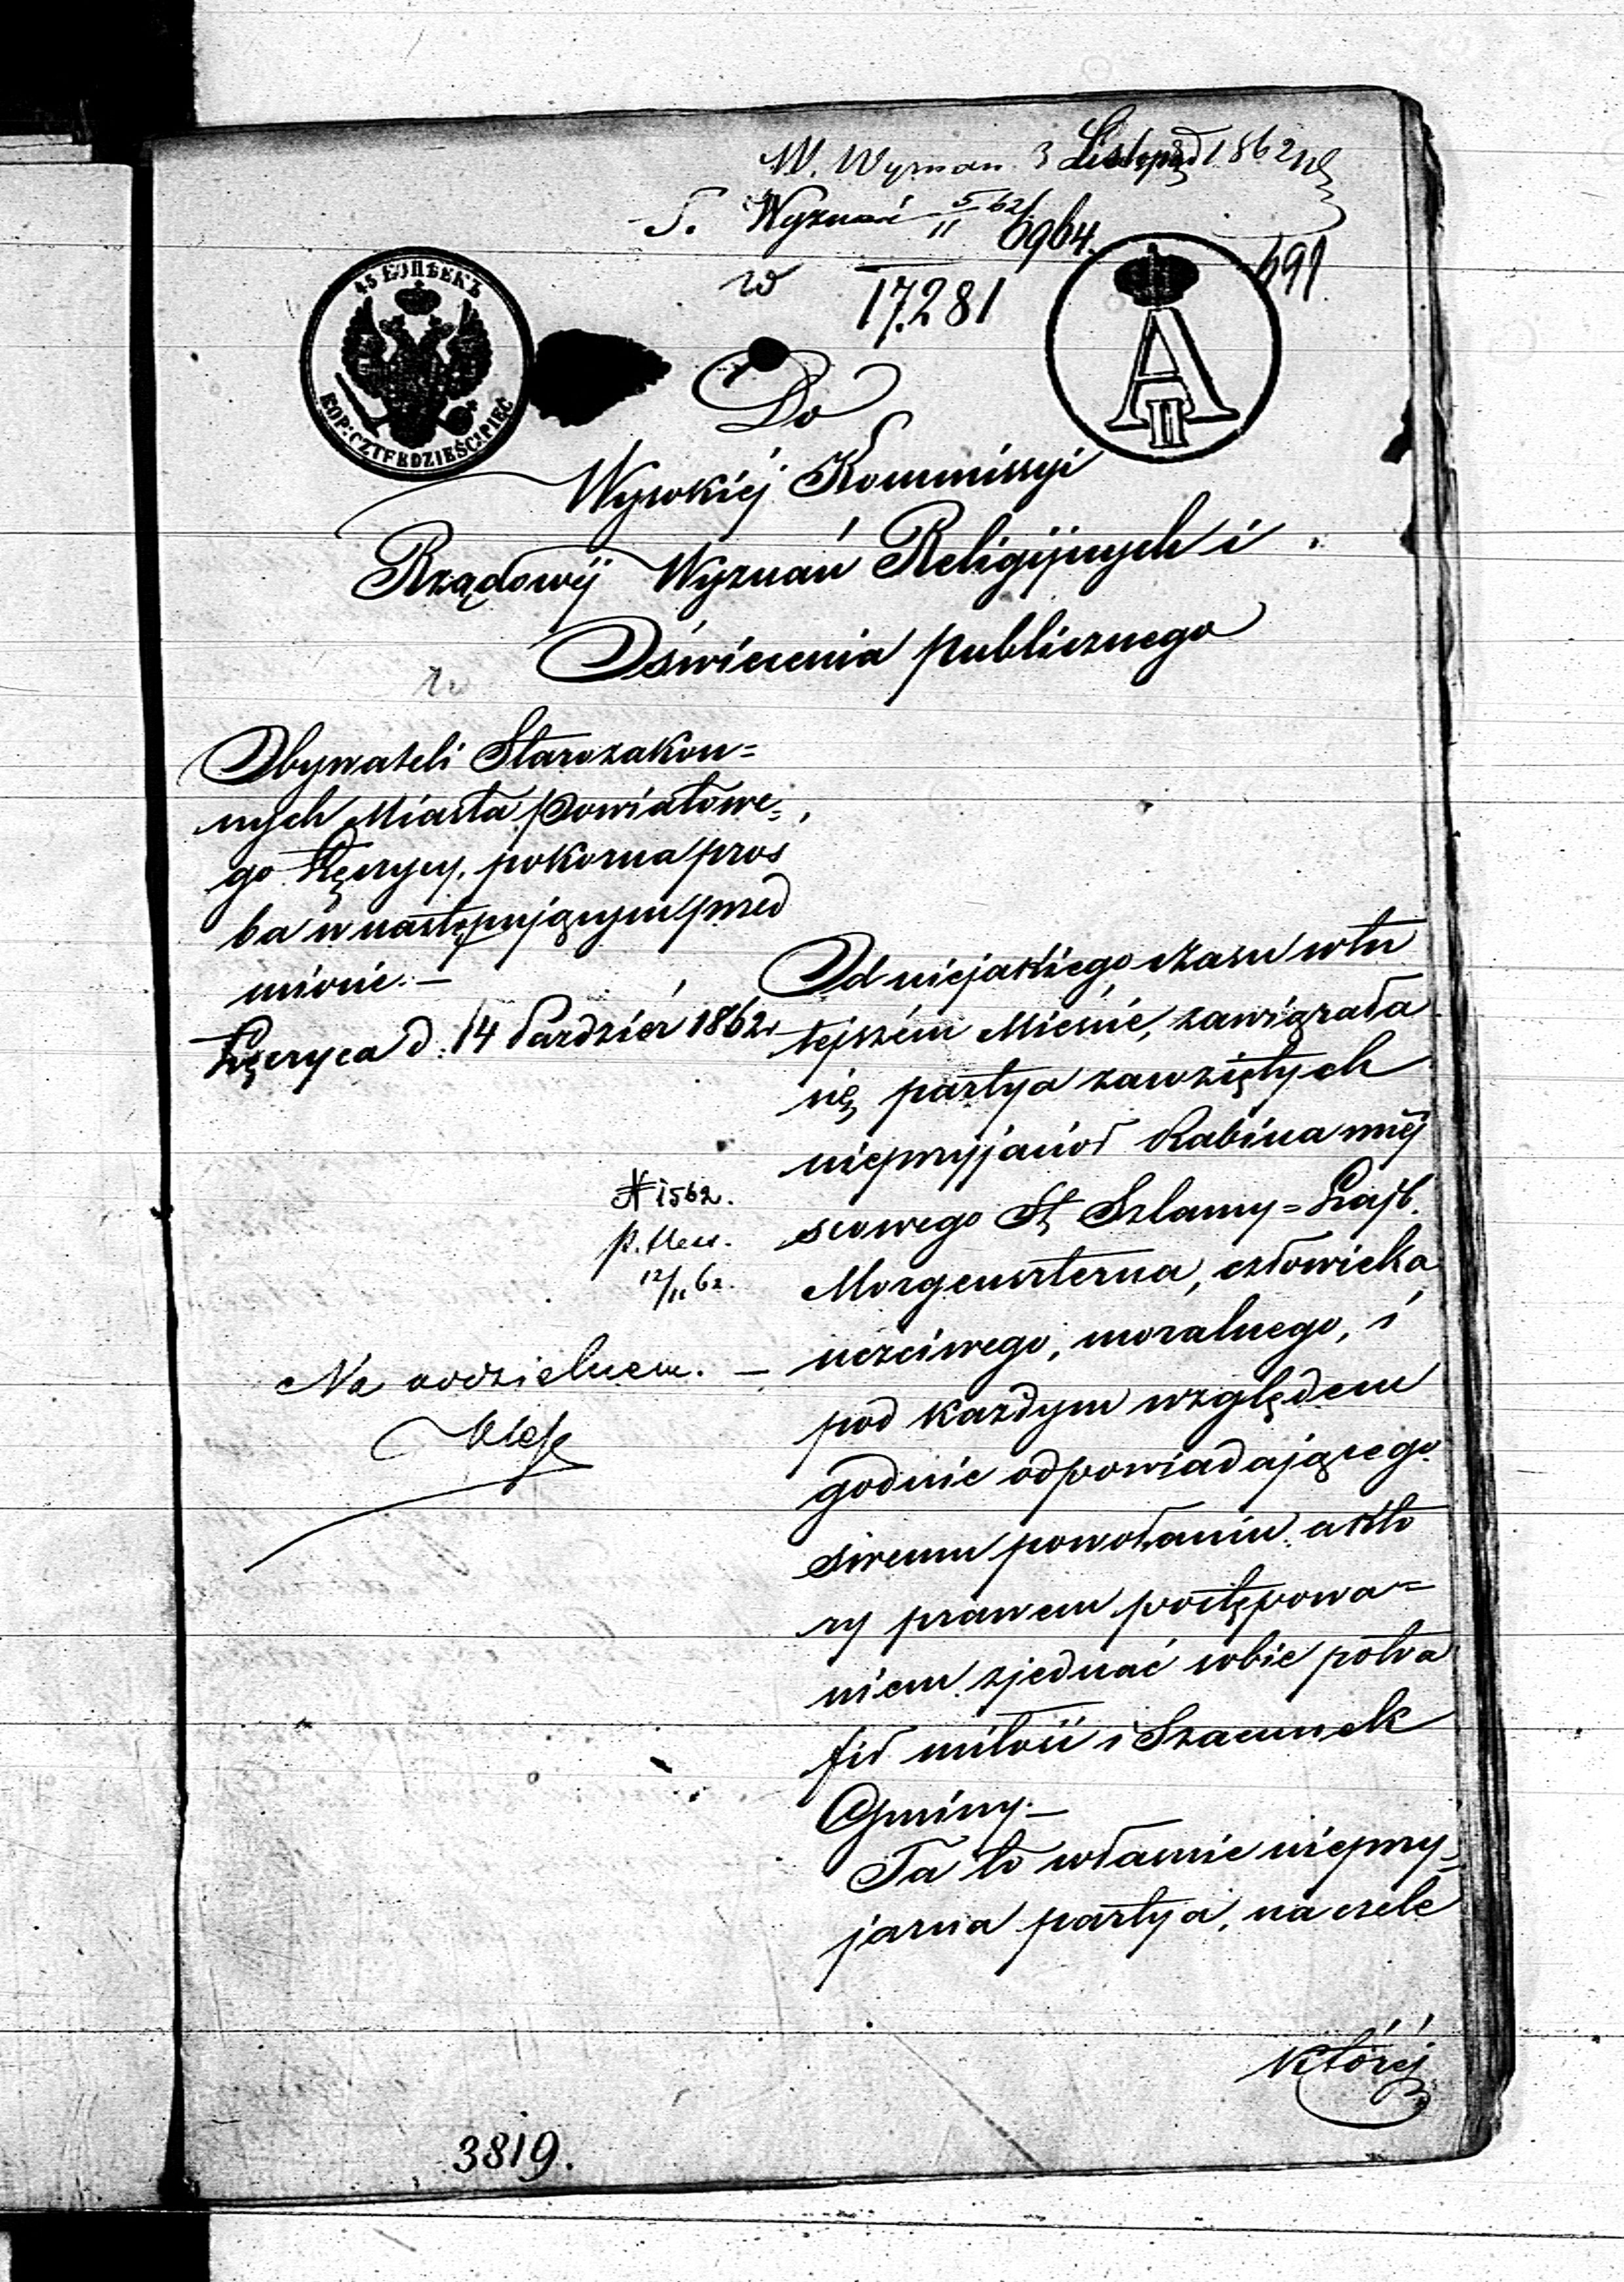 W. Wyznań 3 Listopad 1862
S. Wyznań 5/11 62
6964.
691
17281
45 КОПѢЕКЪ
KOP: CZTERDZIEŚCI PIĘĆ
A II
Do
Wysokiéj Kommissyi
Rządowéj Wyznań Religijnych i
Oświecenia publicznego
Obywateli Starozakon=
nych Miasta Powiatowe=
go Łęczycy, pokorna proś
ba w następującym przed
miocie. —
Łęczyca d. 14 Paździer 1862r
Od niejakiego czasu w tu
tejszém Mieście, zawiązała
się partya zawziętych
nieprzyjaciół Rabina miéj
scowego St. Szlamy=Lajb.
Morgensterna, człowieka
uczciwego, moralnego, i
pod każdym względem
godnie odpowiadającego
swemu powołaniu, a któ
ry prawem postępowa=
niem zjednać sobie potra
fił miłość i Szacunek
Gminy. —
Ta to właśnie nieprzy=
jazna partya, na czele
któréj
N 1562.
12/11 62.
Na oddzielnem. —
3819.